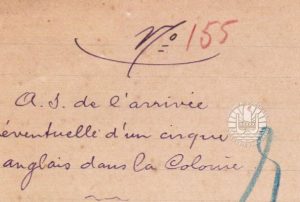 N° 155
A. S. de l'arrivée
éventuelle d'un cirque
anglais dans la Colonie